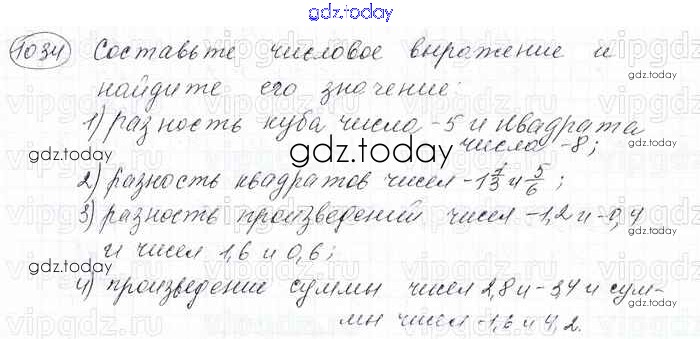 gdz.today
1034 Составьте числовое выражение и
найдите его значение:
1) разность куба числа -5 и квадрата
числа -8;
2) разность квадратов чисел -1 1/3 и 5/6;
3) разность произведений чисел -1,2 и -0,4
и чисел 1,6 и 0,6;
4) произведение суммы чисел 2,8 и -3,4 и сум-
мы чисел -1,6 и 4,2.
gdz.today
gdz.today
gdz.today
gdz.today
gdz.today
gdz.today
gdz.today
gdz.today